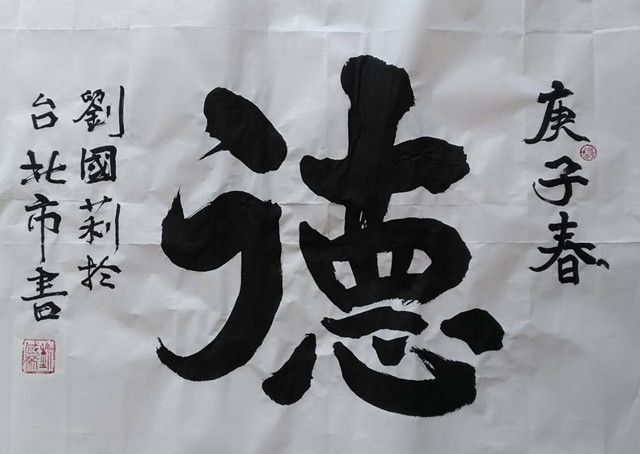 庚子春
德
劉國莉於
台北市書